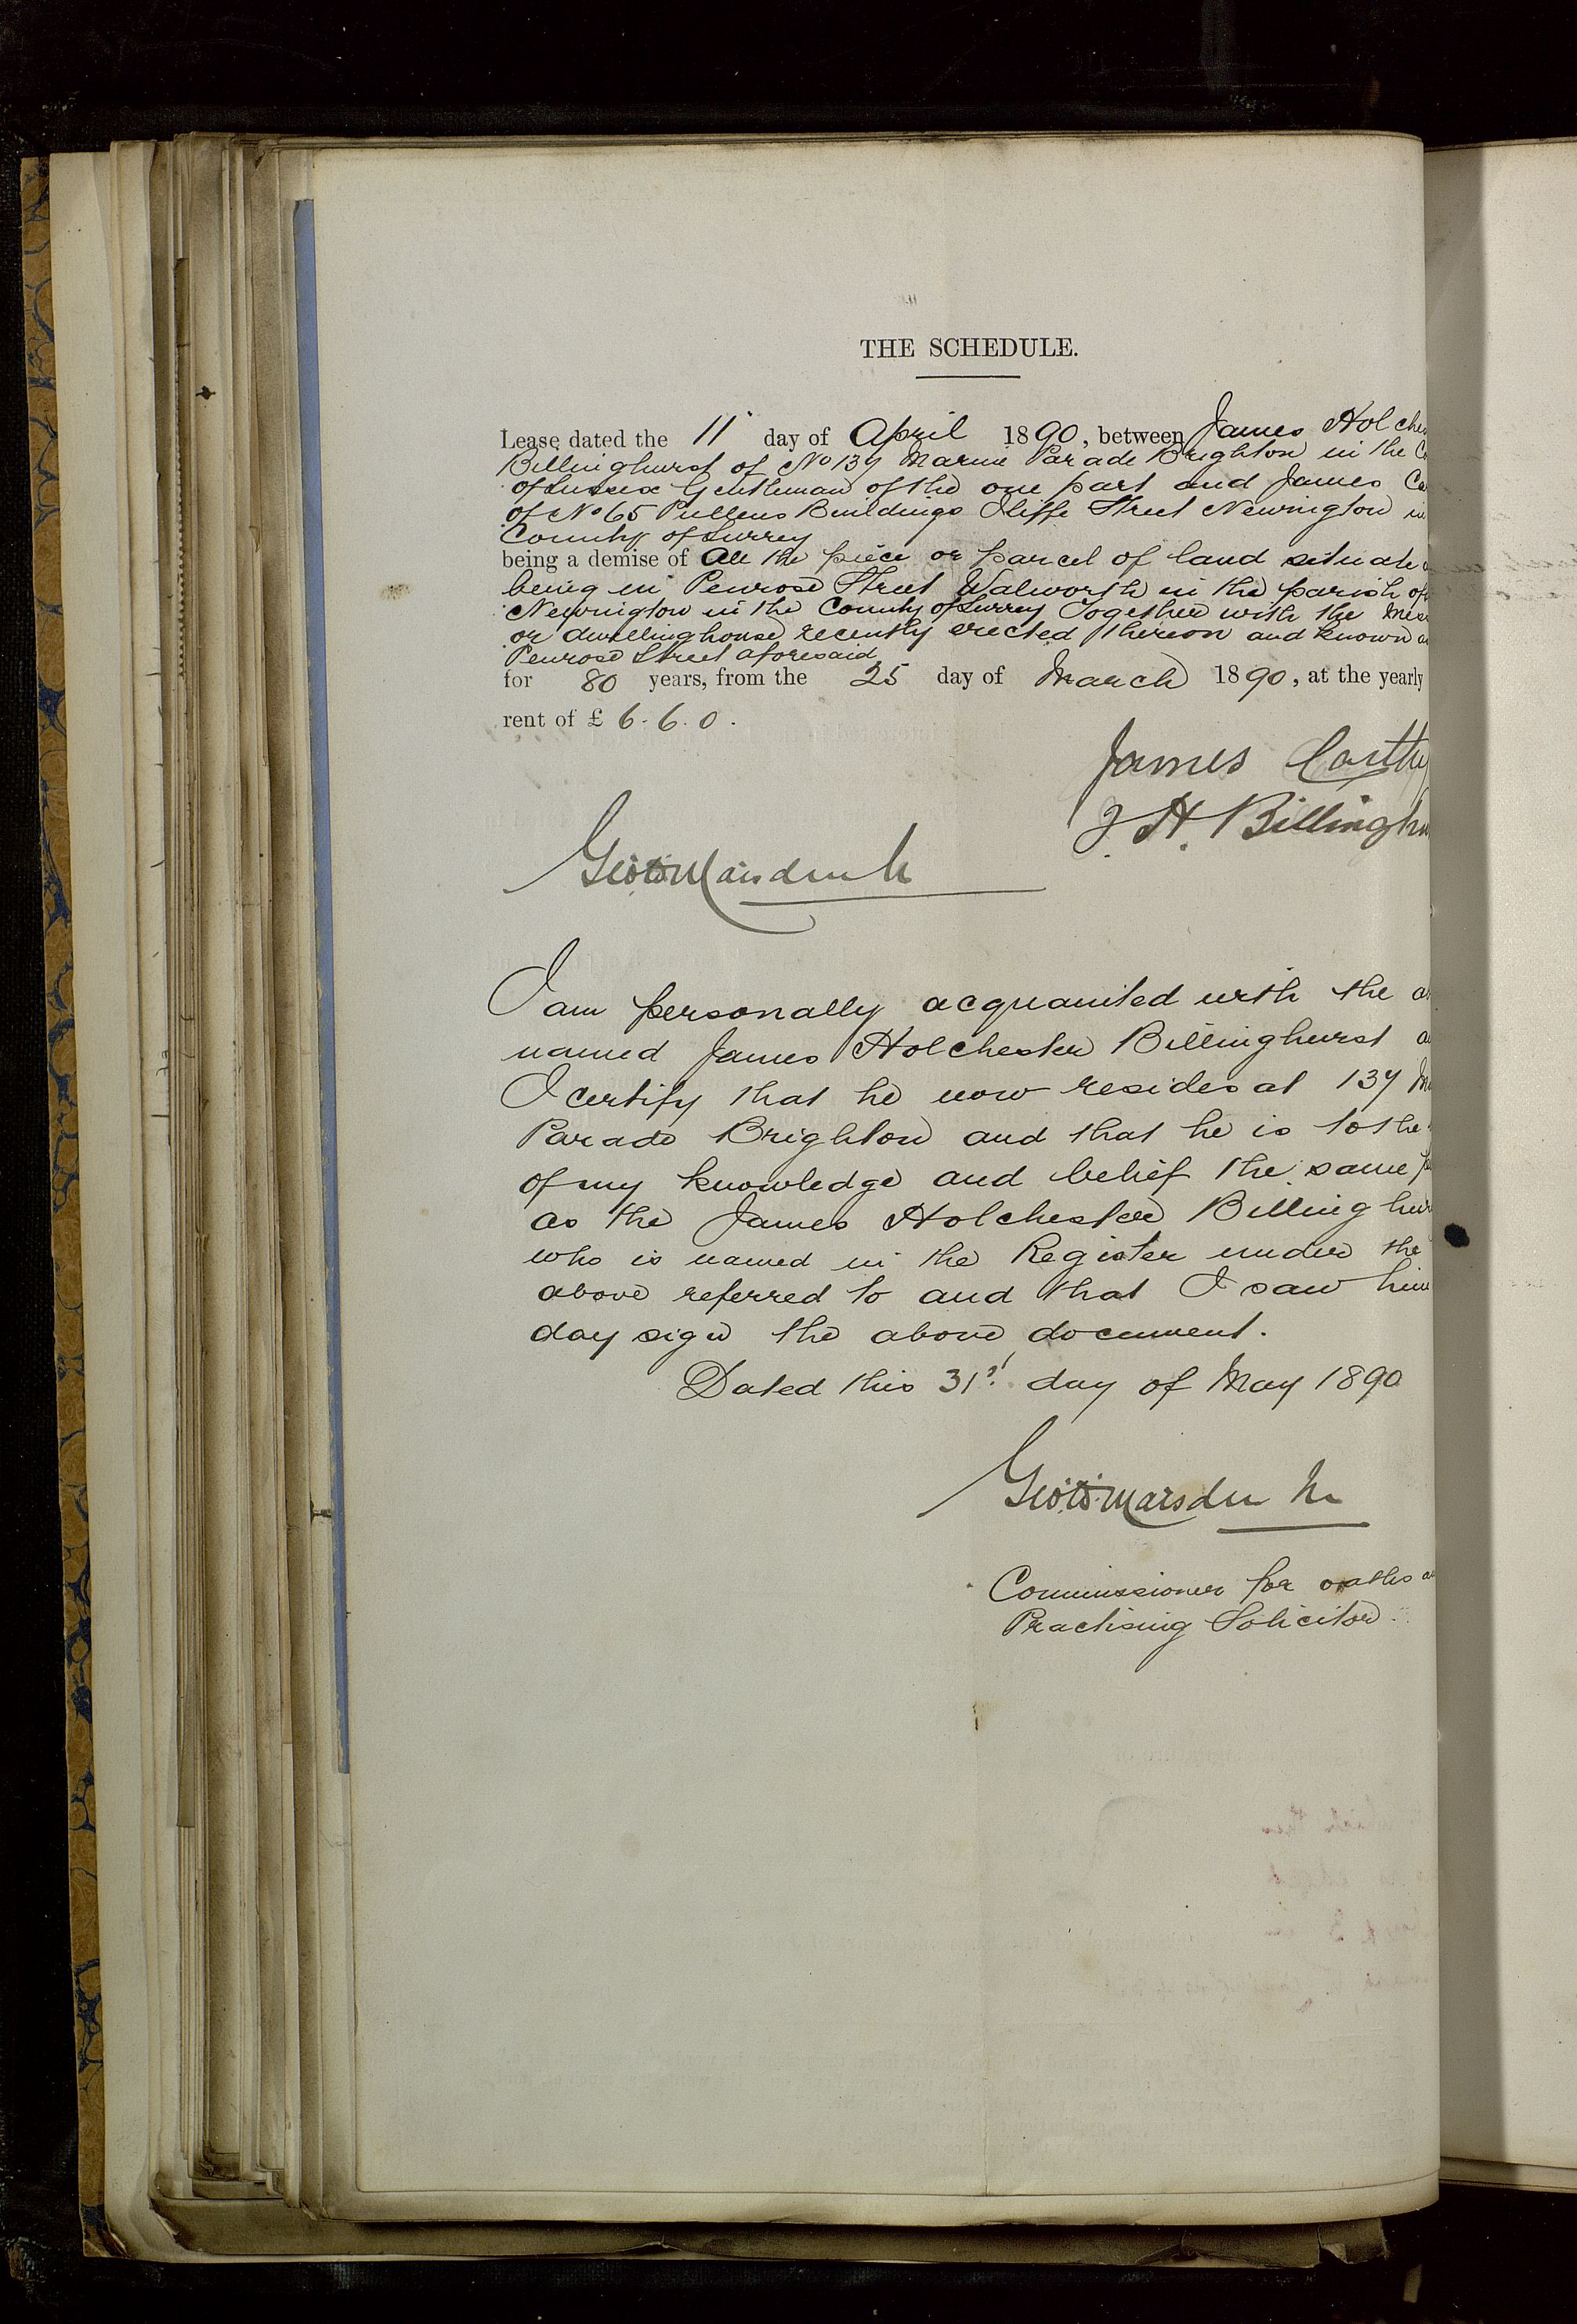 THE SCHEDULE.
Lease dated the 11 day of April 1890, between James Holches
Billinghurst of No 137 Marine Parade Brighton in the Co
of Sussex Gentleman of the one part and James Ca
of No 65 Pullens Buildings Iliffe Street Newington in
County of Surrey
being a demise of All the piece or parcel of land situate
being in Penrose Street Walworth in the parish of
Newington in the County of Surrey Together with the mess
or dwellinghouse recently erected thereon and known a
Penrose Street aforesaid
for 80 years, from the 25 day of March 1890, at the yearly
rent of £ 6. 6. 0.
James
J H. Billinghu
I am personally acquainted with the a
named James Holchester Billinghurst a
I certify that he now resides at 137 Ma
Parade Brighton and that he is to the
of my knowledge and belief the same p
as the James Holchester Billinghur
who is named in the Register under the
above referred to and that I saw him
day sign the above document.
Dated this 31st day of May 1890
Marsden
Commissioner for oaths a
Practising Solicitor.